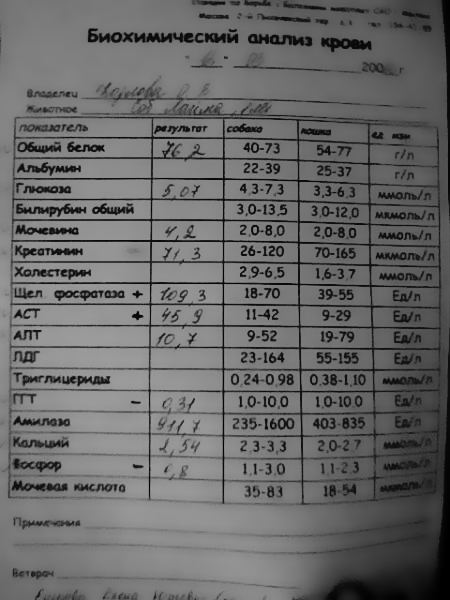 Станция по борьбе с болезнями животных
Москва
Биохимический анализ крови
200 г
Владелец
Животное Соб
показатель результат собака кошка ед. изм
Общий белок 76,2 40-73 54-77 г/л
Альбумин 22-39 25-37 г/л
Глюкоза 5,07 4,3-7,3 3,3-6,3 ммоль/л
Билирубин общий 3,0-13,5 3,0-12,0 мкмоль/л
Мочевина 4,2 2,0-8,0 2,0-8,0 ммоль/л
Креатинин 71,3 26-120 70-165 мкмоль/л
Холестерин 2,9-6,5 1,6-3,7 ммоль/л
Щел. фосфатаза + 109,3 18-70 39-55 Ед/л
АСТ + 45,9 11-42 9-29 Ед/л
АЛТ 10,7 9-52 19-79 Ед/л
ЛДГ 23-164 55-155 Ед/л
Триглицериды 0,24-0,98 0,38-1,10 ммоль/л
ГГТ - 0,31 1,0-10,0 1,0-10,0 Ед/л
Амилаза 911,7 235-1600 403-835 Ед/л
Кальций 2,54 2,3-3,3 2,0-2,7 ммоль/л
Фосфор - 0,8 1,1-3,0 1,1-2,3 ммоль/л
Мочевая кислота 35-83 18-54 мкмоль/л
Примечания
Ветврач